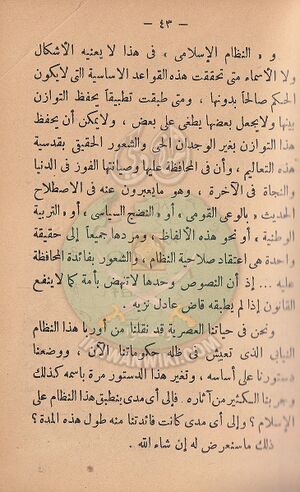 — ٤٣ —
و « النظام الإسلامى ، فى هذا لا يعنيه الأشكال
ولا الأسماء متى تحققت هذه القواعد الاساسية التى لا يكون
الحكم صالحاً بدونها ، ومتى طبقت تطبيقاً يحفظ التوازن
بينها ولا يجعل بعضها يطغى على بعض ، ولا يمكن أن يحفظ
هذا التوازن بغير الوجدان الحى والشعور الحقيقى بقدسية
هذه التعاليم ، وأن فى المحافظة عليها وصيانتها الفوز فى الدنيا
والنجاة فى الآخرة ، وهو ما يعبرون عنه فى الاصطلاح
الحديث « بالوعى القومى ، أو « النضج السياسى ، أو « التربية
الوطنية ، أو نحو هذه الألفاظ ، ومردها جميعاً إلى حقيقة
واحدة هى اعتقاد صلاحية النظام ، والشعور بفائدة المحافظة
عليه ... إذ أن النصوص وحدها لا تنهض بأمة كما لا ينفع
القانون إذا لم يطبقه قاض عادل نزيه .
ونحن فى حياتنا العصرية قد نقلنا من أوربا هذا النظام
النيابى الذى تعيش فى ظله حكوماتنا الآن ، ووضعنا
دستورنا على أساسه ، وتغير هذا الدستور مرة باسمه كذلك
وجربنا الكثير من آثاره . فإلى أى مدى ينطبق هذا النظام على
الإسلام ؟ وإلى أى مدى كانت فائدتنا منه طول هذه المدة ؟
ذلك ما سنعرض له إن شاء الله .
IKHWANWIKI.COM